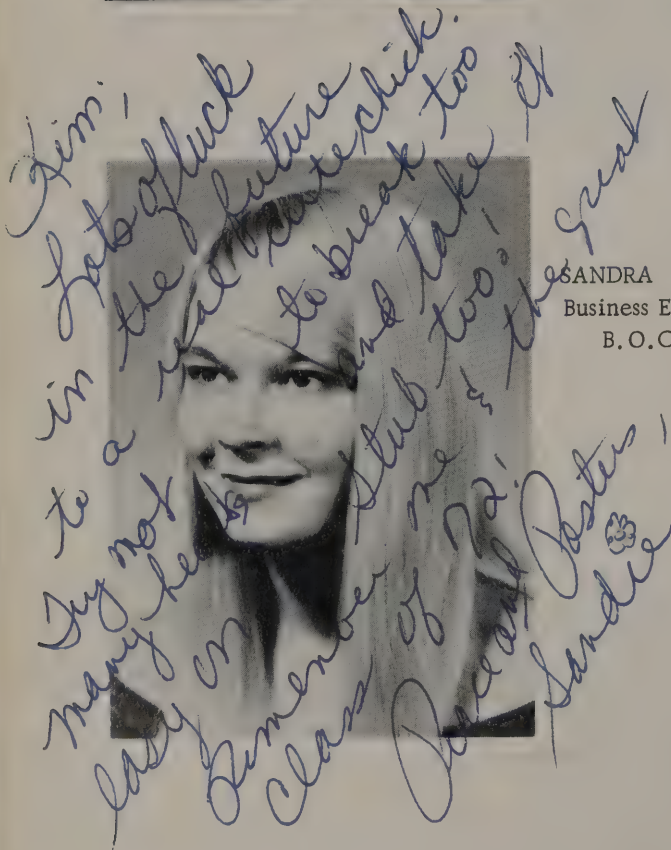 Kim,
Lots of luck
in the future
to a real cute chick.
Try not to break too
many hearts and take it
easy on Stub too!
Remember me & the great
class of 72!
Peace and Posters,
Sandie
SANDRA
Business E
B.O.C